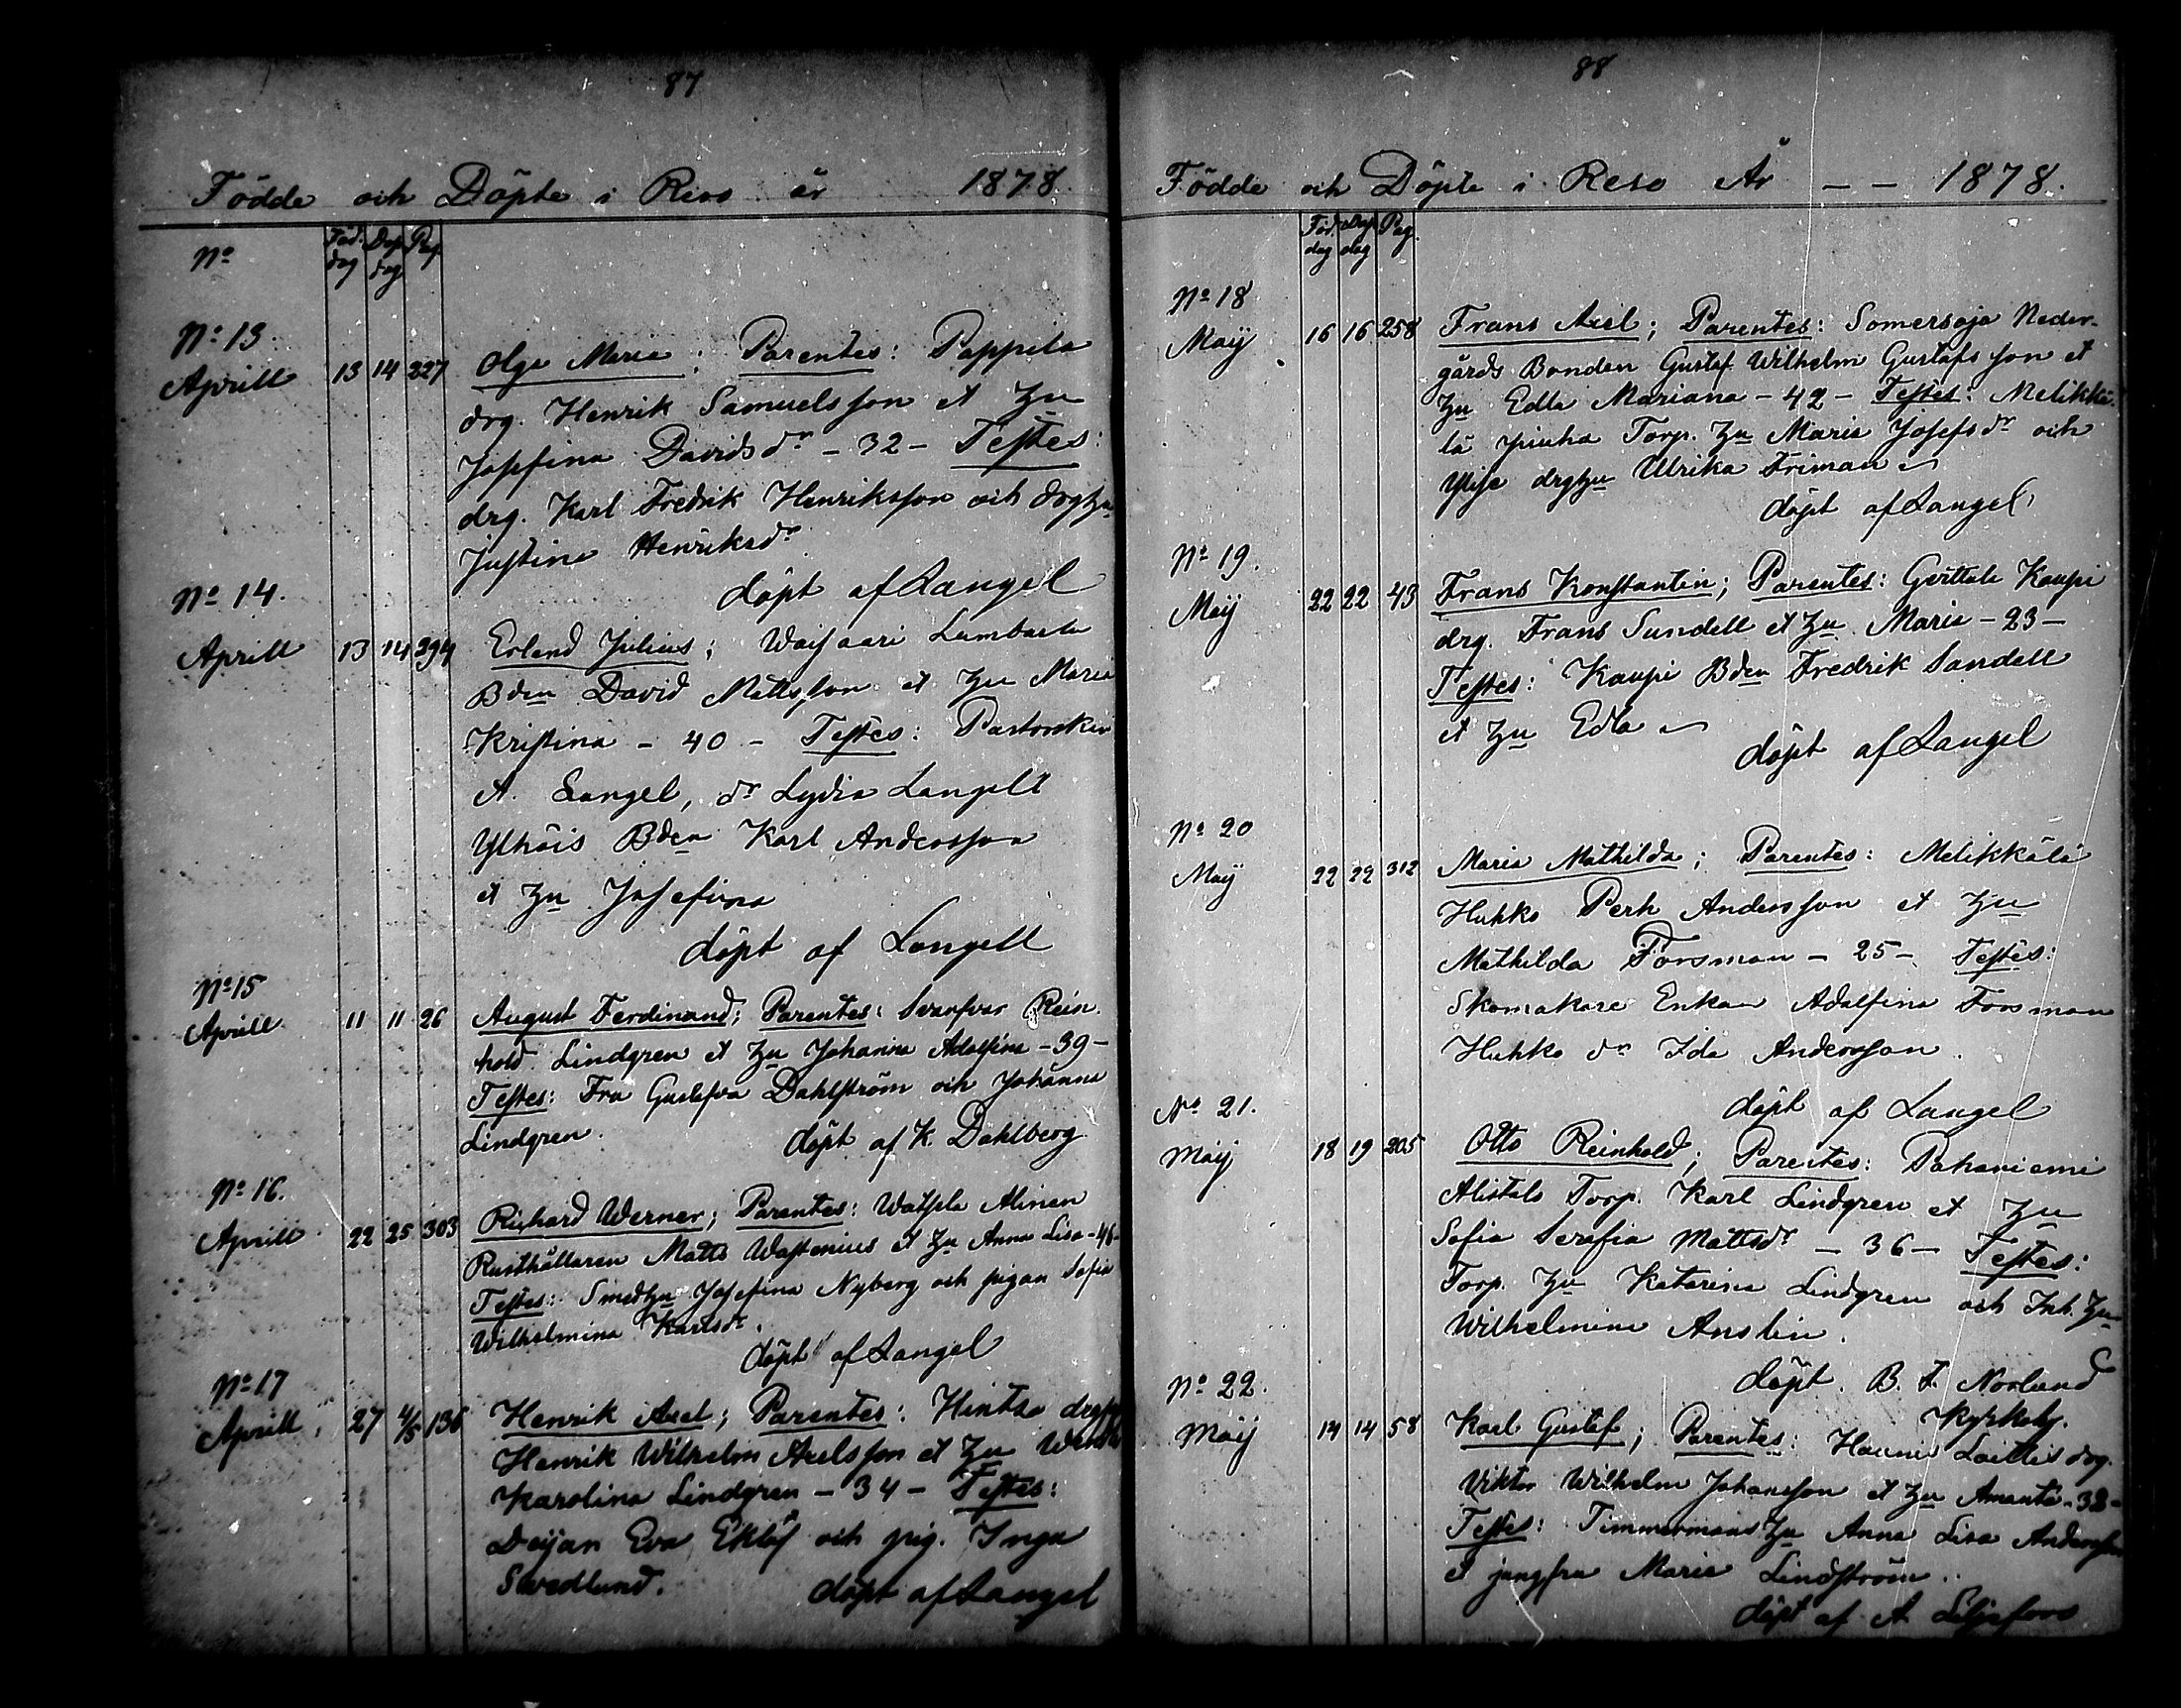 87
Födde och Döpte i Reso år 1878.
No Föd. dag Dop dag Pag
No 13.
Aprill 13 14 227 Olga Maria; Parentes: Pappila
drg. Henrik Samuelsson et Hu
Josefina Davidsdr - 32 - Testes:
drg. Karl Fredrik Henriksson och drghu
Justina Henriksdr
döpt af Langel
No 14.
Aprill 13 14 294 Erland Julius; Waisaari Lambaela
Bden David Mattsson et Hu Maria
Kristina - 40 - Testes: Pastorskan
A. Langel, dr Lydia Langell
Ylhäis Bden Karl Andersson
et Hu Josefina
döpt af Langell
No 15
Aprill 11 11 26 August Ferdinand; Parentes: Svarfvar Rein-
hold Lindgren et Hu Johanna Adolfina - 39 -
Testes: Fru Gustafva Dahlström och Johanna
Lindgren. döpt af K. Dahlberg
No 16.
Aprill 22 25 303 Richard Werner; Parentes: Watsela Alinen
Rusthållaren Matts Wastenius et Hu Anna Lisa - 46 -
Testes: Smedhu Josefina Nyberg och pigan Sofia
Wilhelmina Karlsdr.
döpt af Langel
No 17
Aprill 27 4/5 136 Henrik Axel; Parentes: Hintsa
Henrik Wilhelm Axelsson et Hu
Karolina Lindgren - 34 - Testes:
Dejan Eva Eklöf och pig. Inga
Swedlund. döpt af Langel
88
Födde och Döpte i Reso År - - 1878.
Föd. dag Dop dag Pag.
No 18
Maij 16 16 258 Frans Axel; Parentes: Somersoja Neder-
gårds Bonden Gustaf Wilhelm Gustafsson et
Hu Edla Mariana - 42 - Testes: Melikkä-
lä Torp. Hu Maria Josefsdr och
drghu Ulrika Friman
döpt af Langel
No 19.
Maij 22 22 43 Frans Konstantin; Parentes: Gerttala Kaupi
drg. Frans Sundell et Hu Maria - 23 -
Testes: Kaupi Bden Fredrik Sandell
et Hu Edla
döpt af Langel
No 20
Maij 22 22 312 Maria Mathilda; Parentes: Melikkälä
Huhko Perh Andersson et Hu
Mathilda Forsman - 25 - Testes:
Skomakare Enkan Adolfina Forsman
Huhko dr Ida Andersson.
döpt af Langel
No 21.
Maij 18 19 205 Otto Reinhold; Parentes: Pahaniemi
Alistalo Torp. Karl Lindgren et Hu
Sofia Serafia Mattsdr - 36 - Testes:
Torp. Hu Katarina Lindgren och Inh. Hu
Wilhelmina Anslin.
döpt. B. F. Norlund
Kyrkohj.
No 22.
Maij 14 14 58 Karl Gustaf; Parentes: Haunis Laittis drg.
Viktor Wilhelm Johansson et Hu Amanta - 32 -
Testes: Timmermans Hu Anna Lisa Andersson
et jungfru Maria Lindström.
döpt af A Liljefors